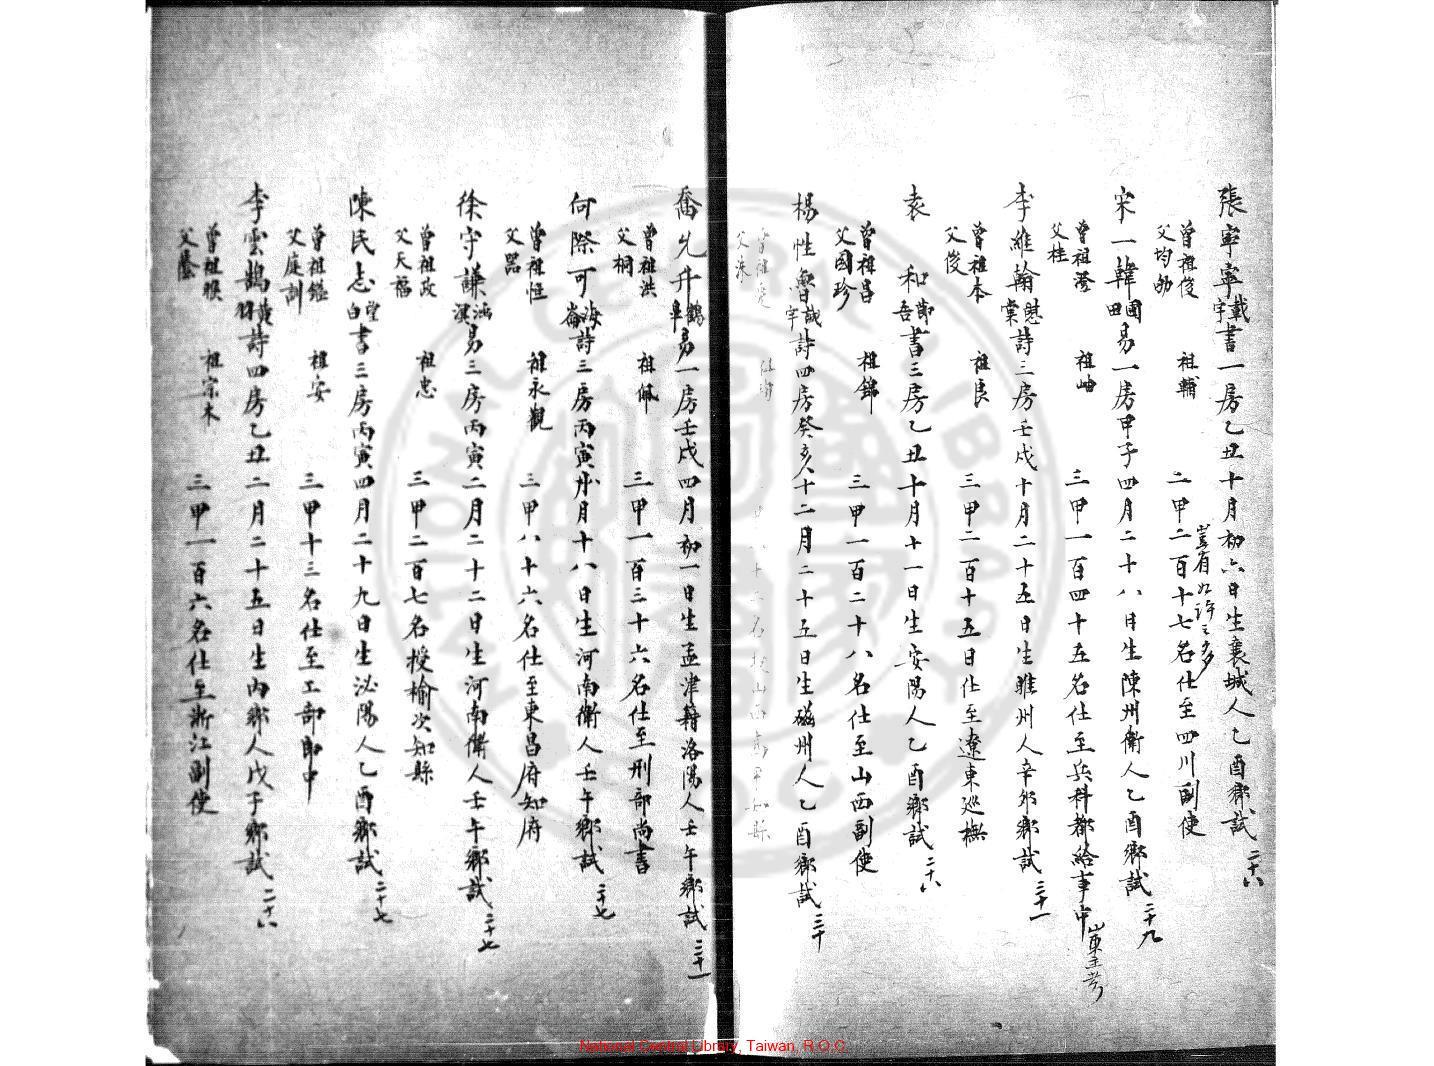 張寧 寧宇 戴書一房乙丑十月初六日生襄城人乙酉鄉試 二十八
曾祖俊 祖輔 二甲二百十七名仕至四川副使
父均
豈有如許之多
宋一韓 國田 易一房甲子四月二十八日生陳州衛人乙酉鄉試 二十九
曾祖澄 祖岫 三甲一百四十五名仕至兵科都給事中
父桂
山東主考
李維翰 詩三房壬戌十月二十五日生睢州人辛卯鄉試 三十一
曾祖本 祖良 三甲二百十五日仕至遼東巡撫
父俊
袁和 節吾 書三房乙丑十月十一日生安陽人乙酉鄉試 二十八
曾祖昌 祖錦 三甲一百二十八名仕至山西副使
父國珍
楊性魯 誠宇 詩四房癸亥十二月二十五日生磁州人乙酉鄉試 三十
喬允升 鶴皋 易一房壬戌四月初一日生孟津籍洛陽人壬午鄉試 三十一
曾祖洪 祖佩 三甲一百三十六名仕至刑部尚書
父桐
何際可 海崙 詩三房丙寅十八日生河南衛人壬午鄉試 二十七
曾祖恒 祖永觀 三甲八十六名仕至東昌府知府
父器
徐守謙 易三房丙寅二月二十二日生河南衛人壬午鄉試 二十七
曾祖政 祖忠 三甲二百七名授榆次知縣
父天福
陳民志 堂白 書三房丙寅四月二十九日生泌陽人乙酉鄉試 二十七
曾祖鑑 祖安 三甲十三名仕至工部郎中
父庭訓
李雲鵠 黃羽 詩四房乙丑二月二十五日生內鄉人戊子鄉試 二十八
曾祖 祖宗木 三甲一百六名仕至浙江副使
父蔭
National Central Library, Taiwan, R.O.C